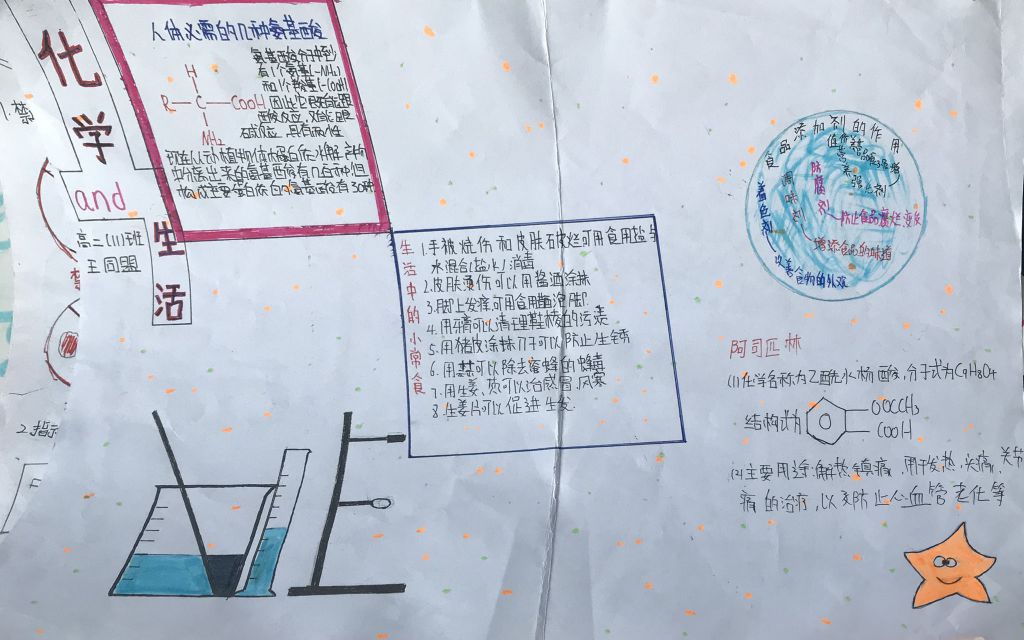 化学
and
生活
高二(11)班
王同盟
人体必需的几种氨基酸
氨基酸分子中到
有1个氨基(-NH₂)
和1个羧基(-COOH)
因此它既能跟
酸反应,又能跟
碱反应,具有两性
H
R—C—COOH
NH₂
现在从动植物体内蛋白质水解
分离出来的氨基酸有几百种但
构成主要蛋白质的氨基酸有
生活中的小常食
1.手被烧伤和皮肤 可用食用盐与
水混合(盐水)消毒
2.皮肤烫伤可以用酱酒涂抹
3.脚上发痒可用食用醋泡脚
4.用牙膏可以清理鞋棱的污渍
5.用猪皮涂抹刀子可以防止生锈
6.用 可以除去蜜蜂的蜂毒
7.用生姜、 可以治感冒、风寒
8.生姜片可以促进生发.
食品添加剂的作用
营养强化剂
防腐剂
防止食品腐烂、变质
调味剂
增添食品的味道
着色剂
改善食物的外观
阿司匹林
(1)化学名称为乙酰水杨酸,分子式为C₉H₈O₄
结构式为
OOCCH₃
COOH
(2)主要用途:解热镇痛,用于发热,头痛,关节
痛的治疗,以及防止心血管老化等
1.禁
禁
2.指示